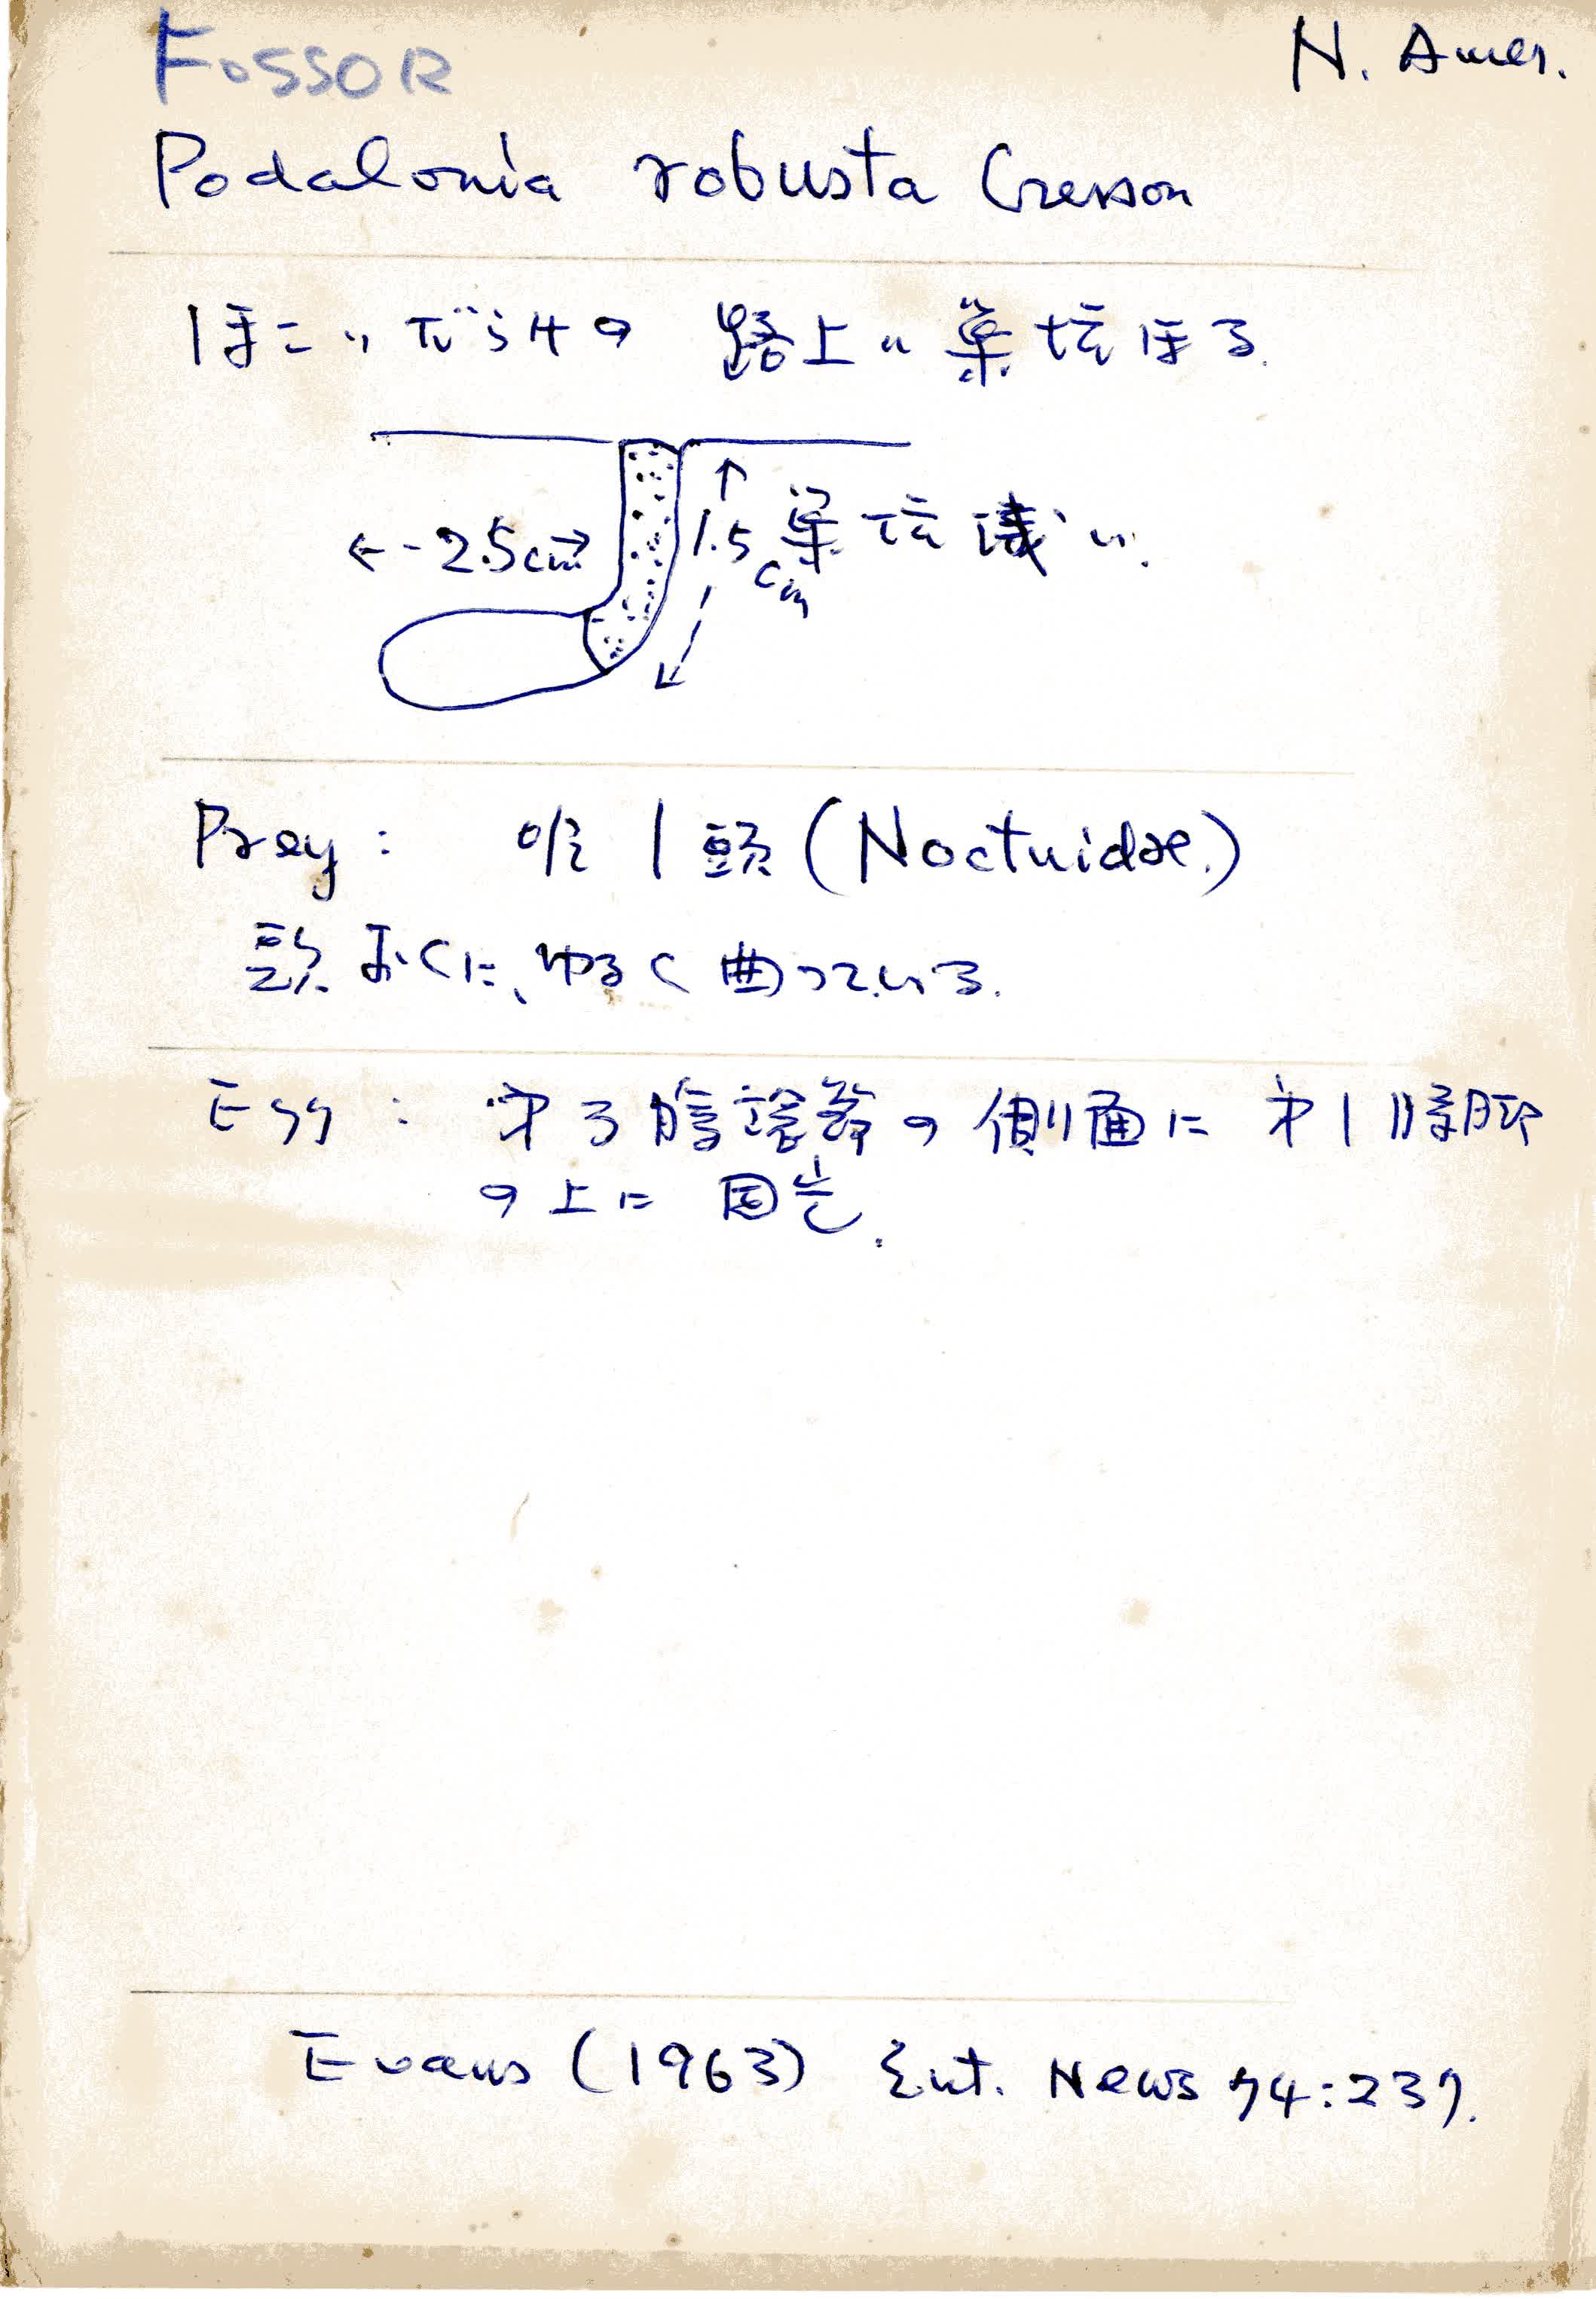 FOSSOR
N. Amer.
Podalonia robusta Cresson
ほこりだらけの 路上に 巣坑ほる.
←-2.5cm→
1.5cm
巣坑浅い.
Prey: 唯1頭 (Noctuidae.)
頭おくに、ゆるく曲っている.
Egg: 才3腹環節の側面に 才1腹脚
の上に 固着.
Evans (1963) Ent. News 74:237.